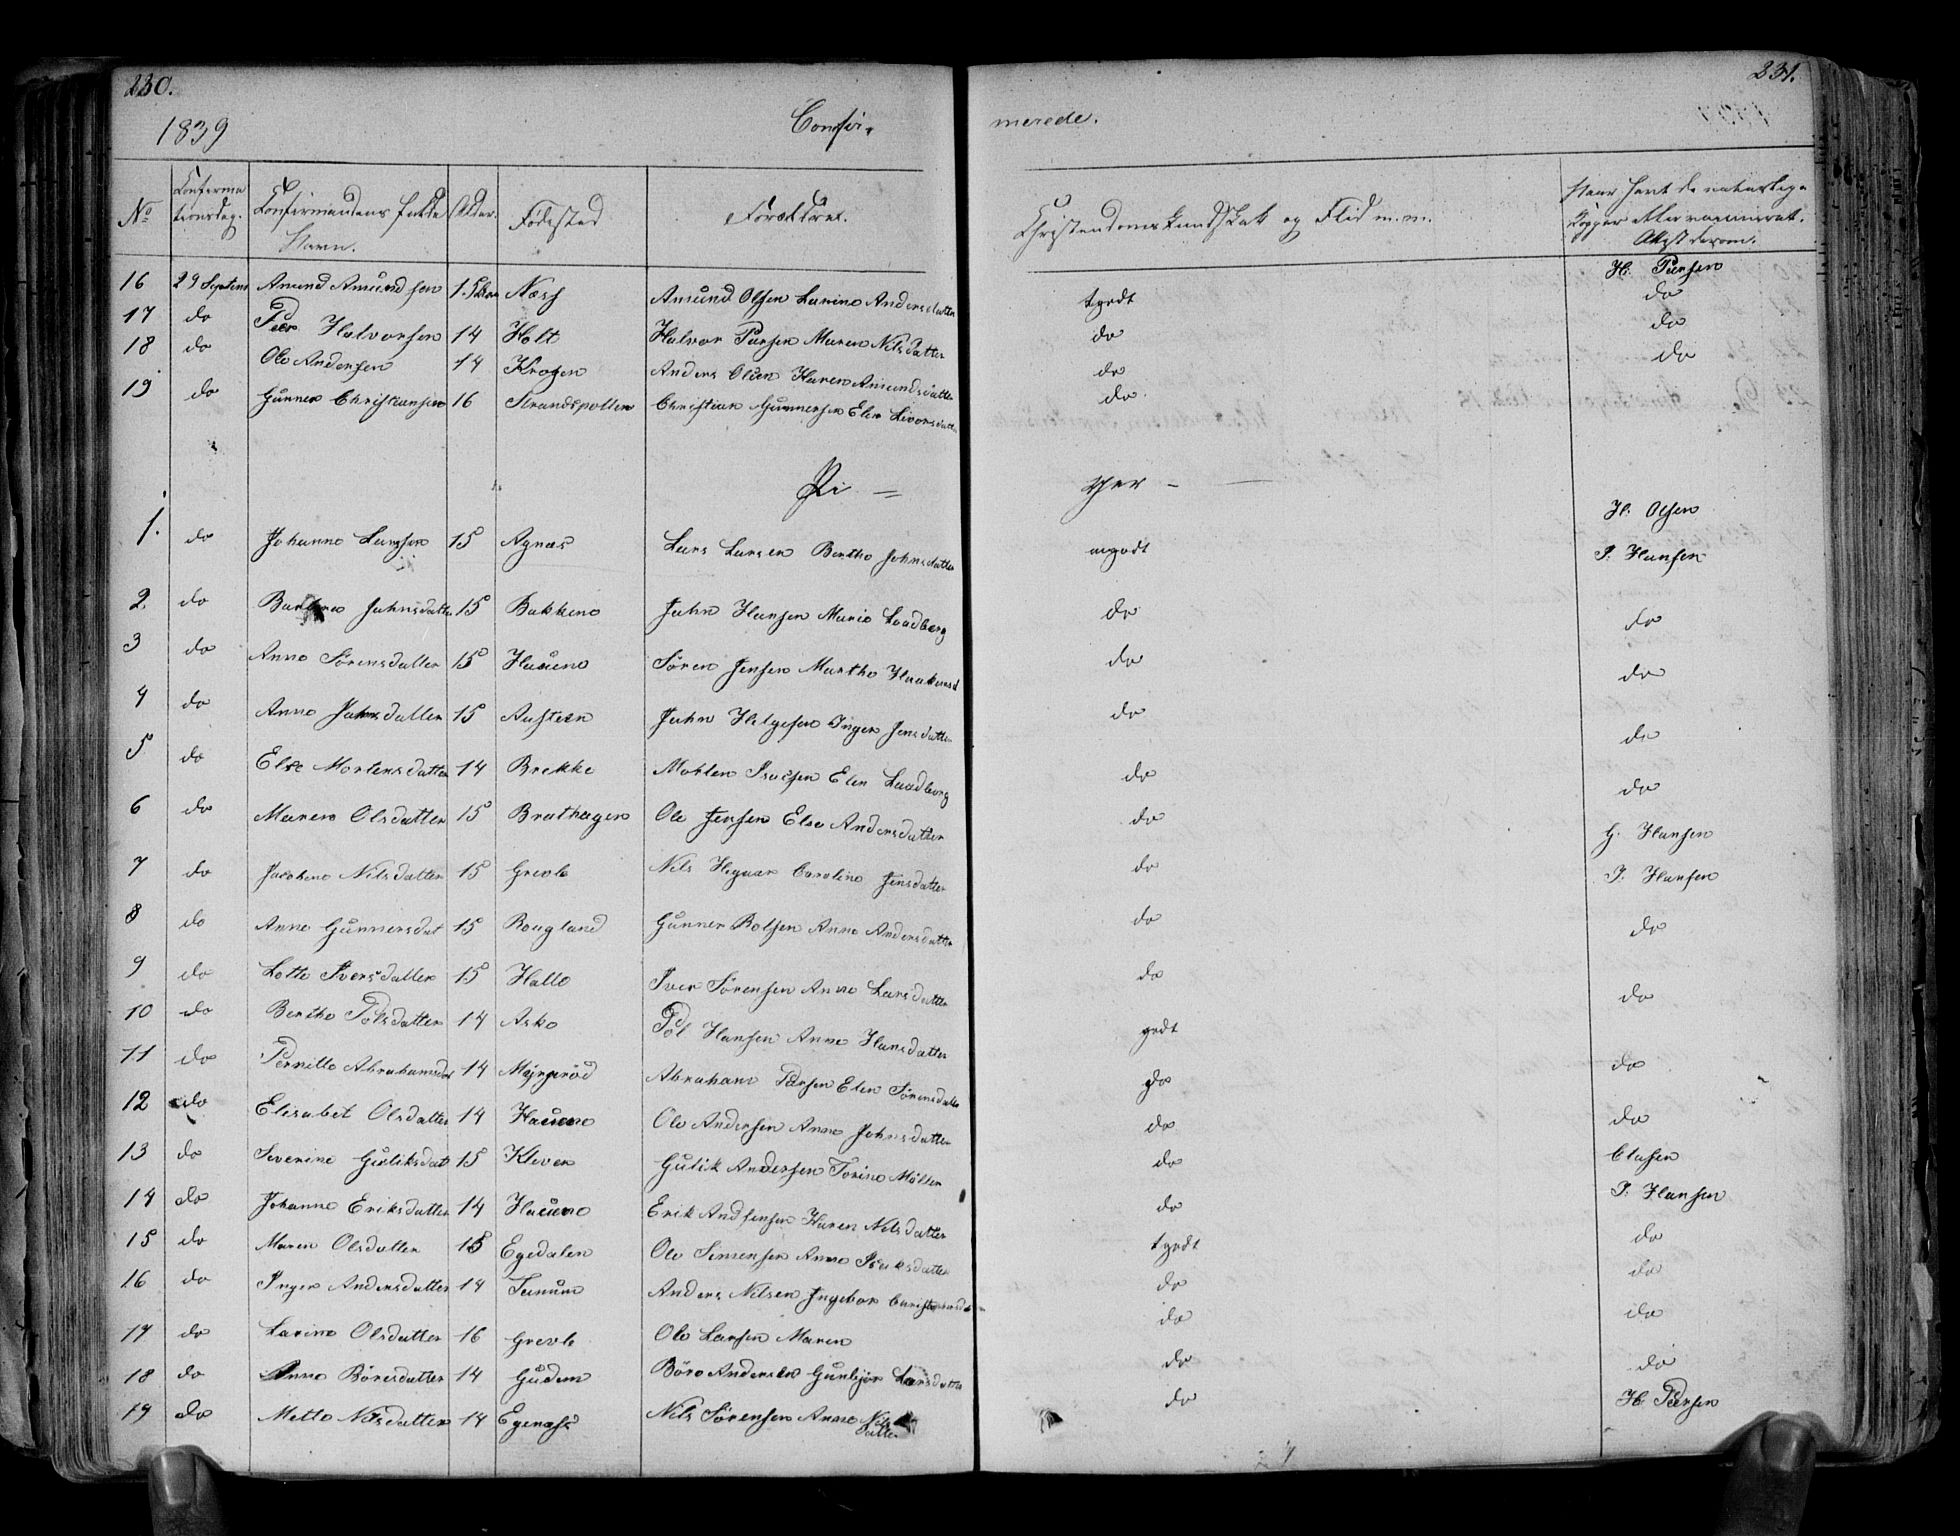 230.
231.
1839 Confir-
merede.
No Confirma tionsdag. Confirmandens fulde Navn. Alder. Fødested Forældrene.
Christendomskundskab og Flid m.m.
Naar havt de naturlige Kopper eller vaccineret. Attest derom.
16 29 Septemb Amund Amundsen 15 Næss Amund Olsen Larine Andersdatter tgodt H. Pærsen
17 do Peer Halvorsen 14 Holt Halvor Pærsen Maren Nilsdatter do do
18 do Ole Andersen 14 Krogen Anders Olsen Karen Amundsdatter do do
19 do Gunner Christiansen 16 Strandspotten Christian Gunnersen Elen Livorsdatter do do
Pi = ger -
1. do Johanne Larsen 15 Agnæs Lars Larsen Berthe Johnsdatter mgodt H. Olsen
P. Hansen
2 do Johnsdatter 15 Bakkene John Hansen Marie Laadberg do do
3 do Anne Sørensdatter 15 Hauene Søren Jensen Marthe Haakensd do do
4 do Anne Johnsdatter 15 Austeen John Helgesen Inger Jensdatter do do
5 do Else Mortensdatter 14 Brekke Mohten Isacsen Elen Laadberg do do
6 do Maren Olsdatter 15 Brathagen Ole Jensen Else Andersdatter do G. Hansen
7 do Jacobine Nilsdatter 15 Grevle Nils Hegaar Caroline Jensdatter do P. Hansen
8 do Anne Gunnersdat 15 Rougland Gunner Rolsen Anne Andersdatter do do
9 do Lotte Iversdatter 15 Halle Iver Sørensen Anne Larsdatter do do
10 do Berthe Polsdatter 14 Aske Pol Hansen Anne Hansdatter godt do
11 do Pernille Abrahamsdat 14 Abraham Pærsen Elen Sørensdatter do do
12 do Elisabet Olsdatter 14 Hauene Ole Andersen Anne Johnsdatter do
13 do Severine Guliksdat 15 Kleven Gulik Andersen Torine Møller do Clasen
14 do Johanne Eriksdatter 14 Hauene Erik Andsensen Karen Nilsdatter do P. Hansen
15 do Maren Olsdatter 15 Egedalen Ole Simensen Anne Isaksdatter tgodt do
16 do Inger Andersdatter 14 Tanum Anders Nilsen Ingebor do do
17 do Larine Olsdatter 16 Grevle Ole Larsen Maren do do
18 do Anne Børesdatter 14 Gudem Børe Andersen Gunbjør Larsdatter do do
19 do Mette Nilsdatter 14 Egenæss Nils Sørensen Anne Nilsdatter do H. Pærsen